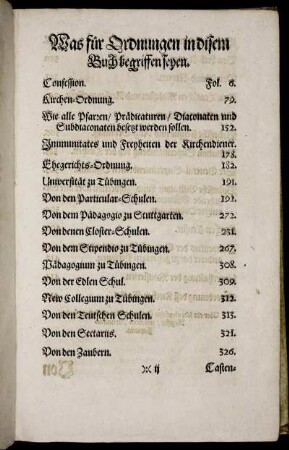 Was für Ordnungen in disem
Buch begriffen seyen.
Confession. Fol. 6.
Kirchen-Ordnung. 79.
Wie alle Pfarren / Prädicaturen / Diaconaten und
Subdiaconaten besetzt werden sollen. 152.
Immunitates und Freyheiten der Kirchendiener.
178.
Ehegerichts-Ordnung. 182.
Universität zu Tübingen. 191.
Von den Particular-Schulen. 191.
Von dem Pädagogio zu Stuttgarten. 272.
Von denen Closter-Schulen. 251.
Von dem Stipendio zu Tübingen. 267.
Pädagogium zu Tübingen. 308.
Von der Edlen Schul. 309.
New Collegium zu Tübingen. 312.
Von den Teutschen Schulen. 313.
Von den Sectariis. 321.
Von den Zaubern. 326.
ij Casten-